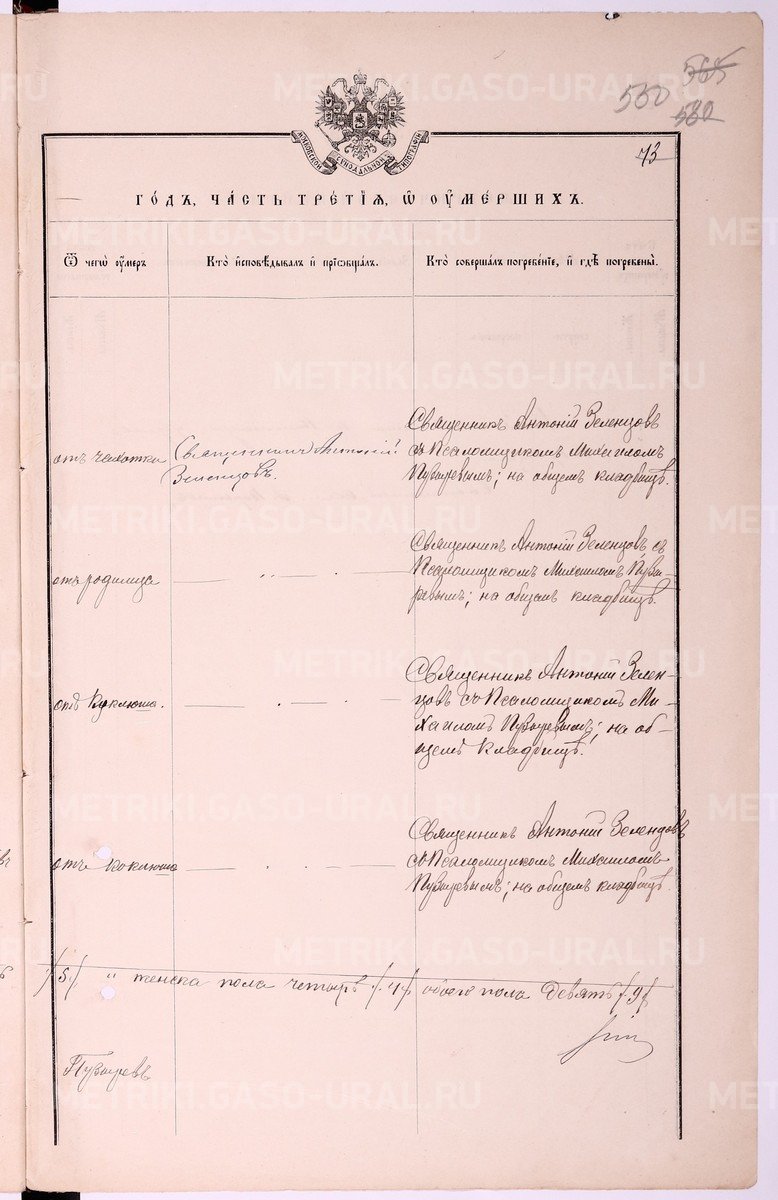 565
550
580
МОСКОВСКОЙ СѴНОДАЛЬНОЙ ТИПОГРАФІИ
73
ГО́ДЪ, ЧА́СТЬ ТРЕ́ТІѦ, Ѡ҆ ОУ҆МЕ́РШИХЪ.
Ѿ чегѡ̀ оу҆́меръ
Кто̀ и҆сповѣ́дывалъ и҆ прїѡбща́лъ.
Кто̀ соверша́лъ погребе́нїе, и҆ гдѣ̀ погребены̀.
отъ чахотки
Священникъ Антоній
Зеленцовъ.
Священникъ Антоній Зеленцовъ
съ Псаломщикомъ Михаиломъ
Пузыревымъ; на общемъ кладбищѣ.
отъ родимца
— „ — . —
Священникъ Антоній Зеленцовъ съ
Псаломщикомъ Михаиломъ Пузы-
ревымъ; на общемъ кладбищѣ.
отъ Коклюша.
— . — . —
Священникъ Антоній Зелен-
цовъ съ Псаломщикомъ Ми-
хаиломъ Пузыревымъ; на об-
щемъ Кладбищѣ.
отъ Коклюша
— . — . —
Священникъ Антоній Зеленцовъ
съ Псаломщикомъ Михаиломъ
Пузыревымъ; на общемъ кладбищѣ.
/5/ „ женска пола четыре /4/ обоего пола Девять /9/
Пузыревъ
METRIKI.GASO-URAL.RU